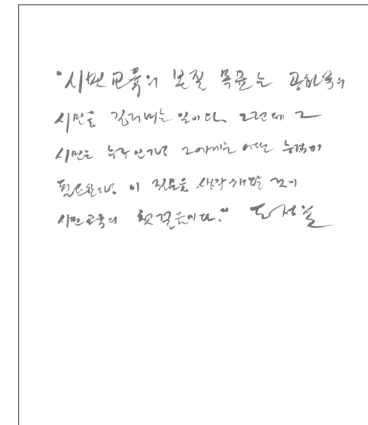 "시민교육의 본질 목표는 공화국의
시민을 길러내는 일이다. 그런데 그
시민은 누구인가? 그에게는 어떤 능력이
필요한가? 이 질문을 생각해보는 것이
시민교육의 첫걸음이다."